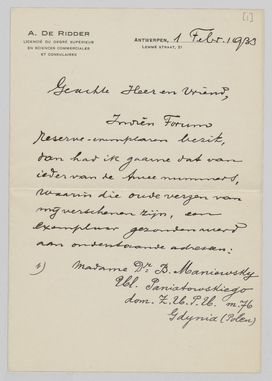 [1]
A. DE RIDDER
LICENCIÉ DU DEGRÉ SUPÉRIEUR
EN SCIENCES COMMERCIALES
ET CONSULAIRES
ANTWERPEN, 1 Febr. 1933
LOMMÉ STRAAT, 21
Geachte Heer en Vriend,
Indien Forum
reserve-exemplaren bezit,
dan had ik gaarne dat van
ieder van de twee nummers,
waarin die oude verzen van
mij verschenen zijn, een
exemplaar gezonden werd
aan onderstaande adressen:
1) Madame Dr. B. Maniewsky
Ul. Paniatowskiego
dom. Z.U.P.U. m. 76
Gdynia (Polen)